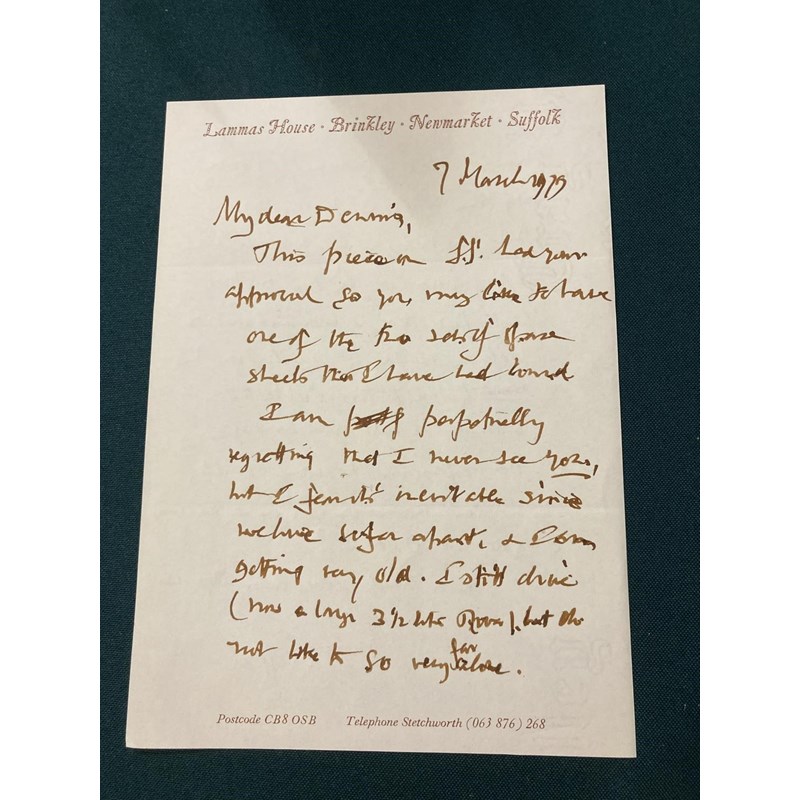 Lammas House · Brinkley · Newmarket · Suffolk
7 March 1979
My dear Dennis,
This piece on S.S. had your
approval so you may like to have
one of the two sets of
sheets that I have had bound
I am perpetually
regretting that I never see you,
but I fear it's inevitable since
we live so far apart, & I am
getting very old. I still drive
(now a large 3½ litre Rover), but do
not like to go very far alone.
Postcode CB8 0SB Telephone Stetchworth (063 876) 268